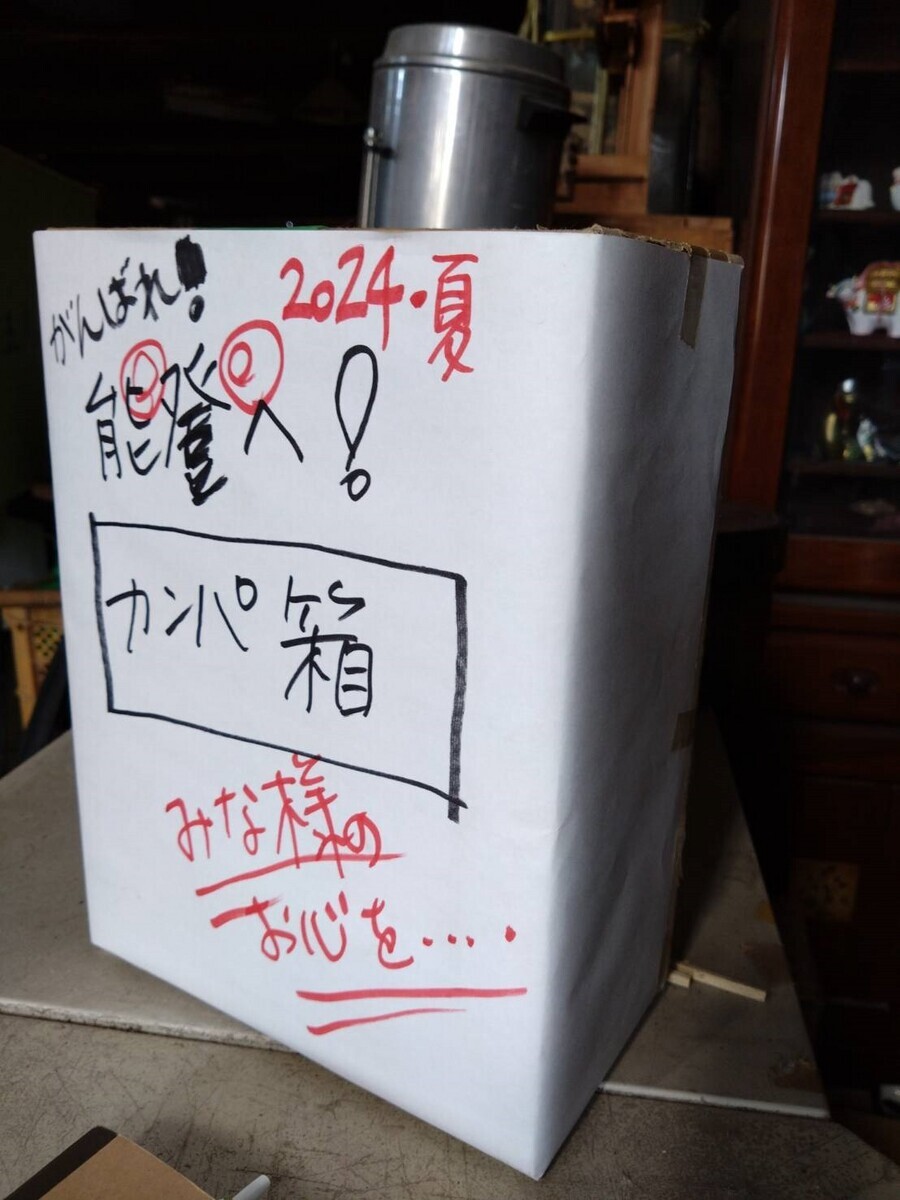 がんばれ!
2024.夏
能登へ!
カンパ箱
みな様の
お心を.....